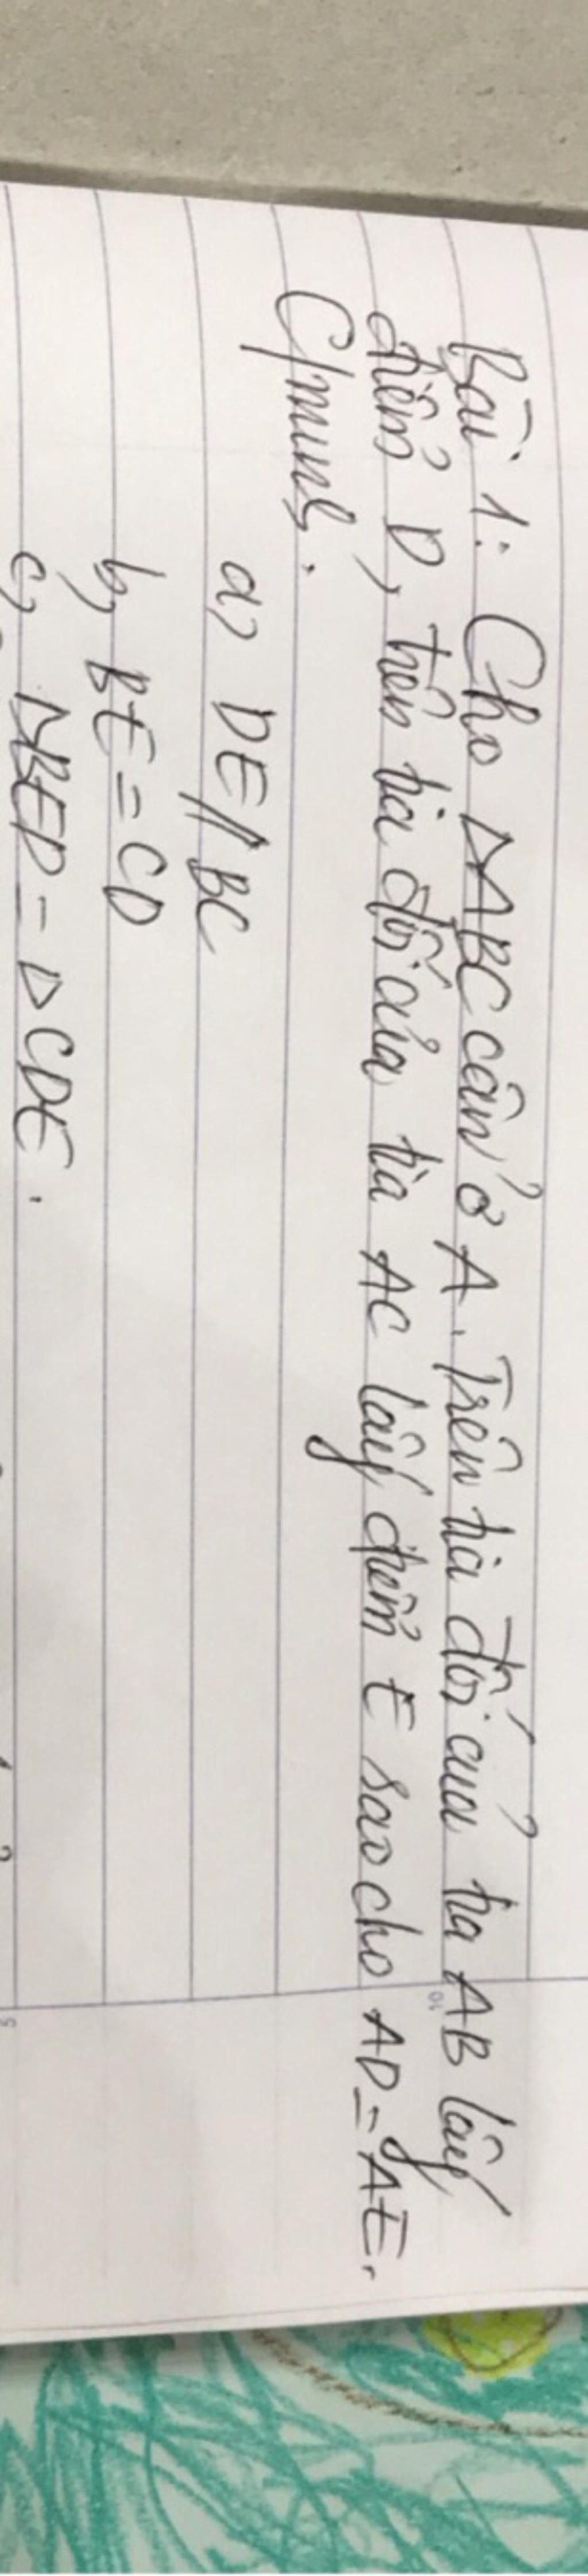 Bài 1: Cho ΔABC cân ở A. Trên tia đối của tia AB lấy
điểm D, trên tia đối của tia AC lấy điểm E sao cho AD = AE.
C/minh.
a, DE // BC
b, BE = CD
c, ΔBED = ΔCDE.